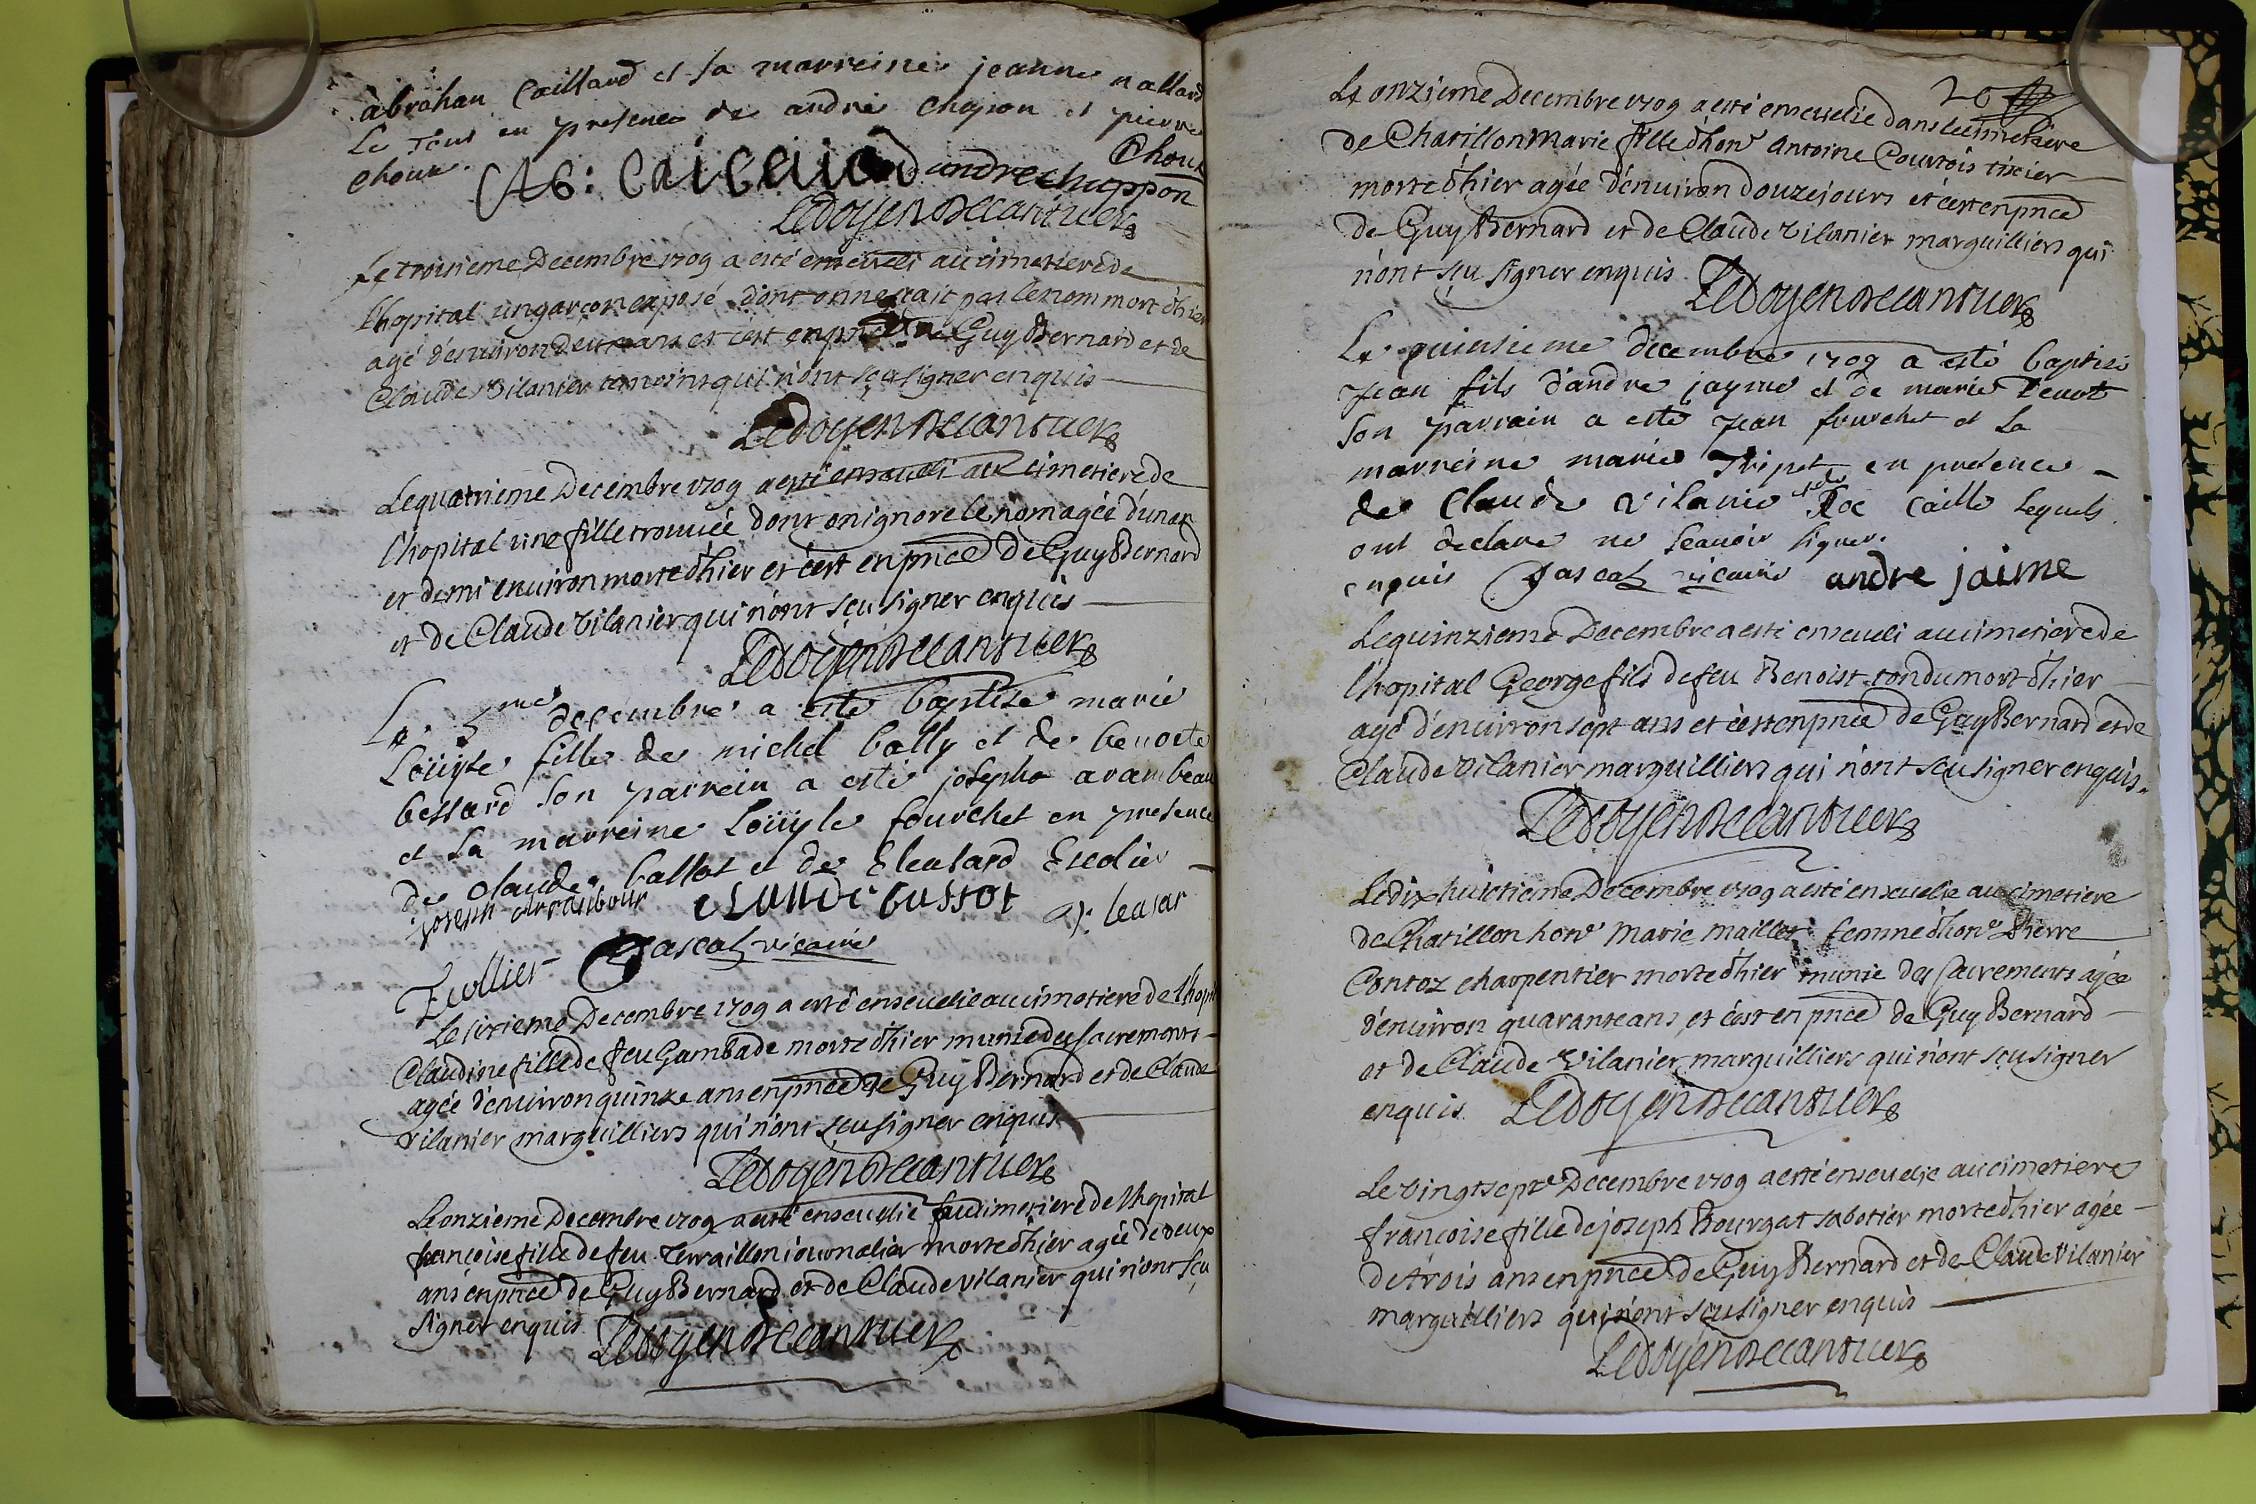 abrahan Caillard et sa marreine jeanne nallard
Le tout en presence de andre chapon et pierre
choux. Choux
Ab: Cailaiard andre chappon
Ledoyen Decantuer
Le troisieme Decembre 1709 a esté enseveli au cimetiere de
l'hopital un garcon exposé dont on ne scait pas le nom mort d'hier
agé d'environ deux ans et c'est en pnce de Guy Bernard et de
Claude Vilanier temoins qui n'ont sçu signer enquis
Ledoyen Decantuer
Le quatrieme Decembre 1709 a esté enseveli au cimetiere de
l'hopital une fille trouvée dont on ignore le nom agée d'un an
et demi environ morte d'hier et c'est en pnce de Guy Bernard
et de Claude Vilanier qui n'ont sçu signer enquis
Ledoyen Decantuer
Le 5me decembre a esté baptise marie
Loüyse fille de michel bally et de benoite
bessard son parrein a esté joseph arambeau
et sa marreine Loüyse fourchet en presence
de claude ballot et de Eleasard Escolier
joseph arrambour claude bussot Eleasar
Pascal vicaire
Ecollier
Le sixieme Decembre 1709 a esté ensevelie au cimetiere de l'hopital
Claudine fille de feu Gambade morte d'hier munie des sacrements
agée d'environ quinze ans en pnce de Guy Bernard et de Claude
Vilanier marguilliers qui n'ont sçu signer enquis
Ledoyen Decantuer
Le onzieme Decembre 1709 a esté ensevelie au cimetiere de l'hopital
francoise fille de feu Terraillon journalier morte d'hier agée de deux
ans en pnce de Guy Bernard et de Claude Vilanier qui n'ont sçu
signer enquis Ledoyen Decantuer
20
Le onzieme Decembre 1709 a esté ensevelie dans le cimetiere
de Chatillon Marie fille d'hon. Antoine Courtois tixier
morte d'hier agée d'environ douze jours et c'est en pnce
de Guy Bernard et de Claude Vilanier marguilliers qui
n'ont sçu signer enquis Ledoyen Decantuer
Le quinsieme decembre 1709 a esté baptisé
Jean fils d'andre jayme et de marie Tenot
son parrain a esté Jean fourchet et la
marreine marie Tripet en presence
de Claude Vilanie et de Roc Caille lequels
ont declare ne scavoir signer.
enquis Pascal vicaire andre jaime
Le quinzieme Decembre a esté enseveli au cimetiere de
l'hopital George fils de feu Benoist tondu mort d'hier
agé d'environ sept ans et c'est en pnce de Guy Bernard et de
Claude Vilanier marguilliers qui n'ont sçu signer enquis.
Ledoyen Decantuer
Le dix huictieme Decembre 1709 a esté ensevelie au cimetiere
de Chatillon hon. Marie Maillet femme d'hon. Pierre
Contoz charpentier morte d'hier munie des sacrements agée
d'environ quarante ans et c'est en pnce de Guy Bernard
et de Claude Vilanier marguilliers qui n'ont sçu signer
enquis Ledoyen Decantuer
Le vingt sept Decembre 1709 a esté ensevelie au cimetiere
francoise fille de joseph Bourgat sabotier morte d'hier agée
de trois ans en pnce de Guy Bernard et de Claude Vilanier
marguilliers qui n'ont sçu signer enquis
Ledoyen Decantuer